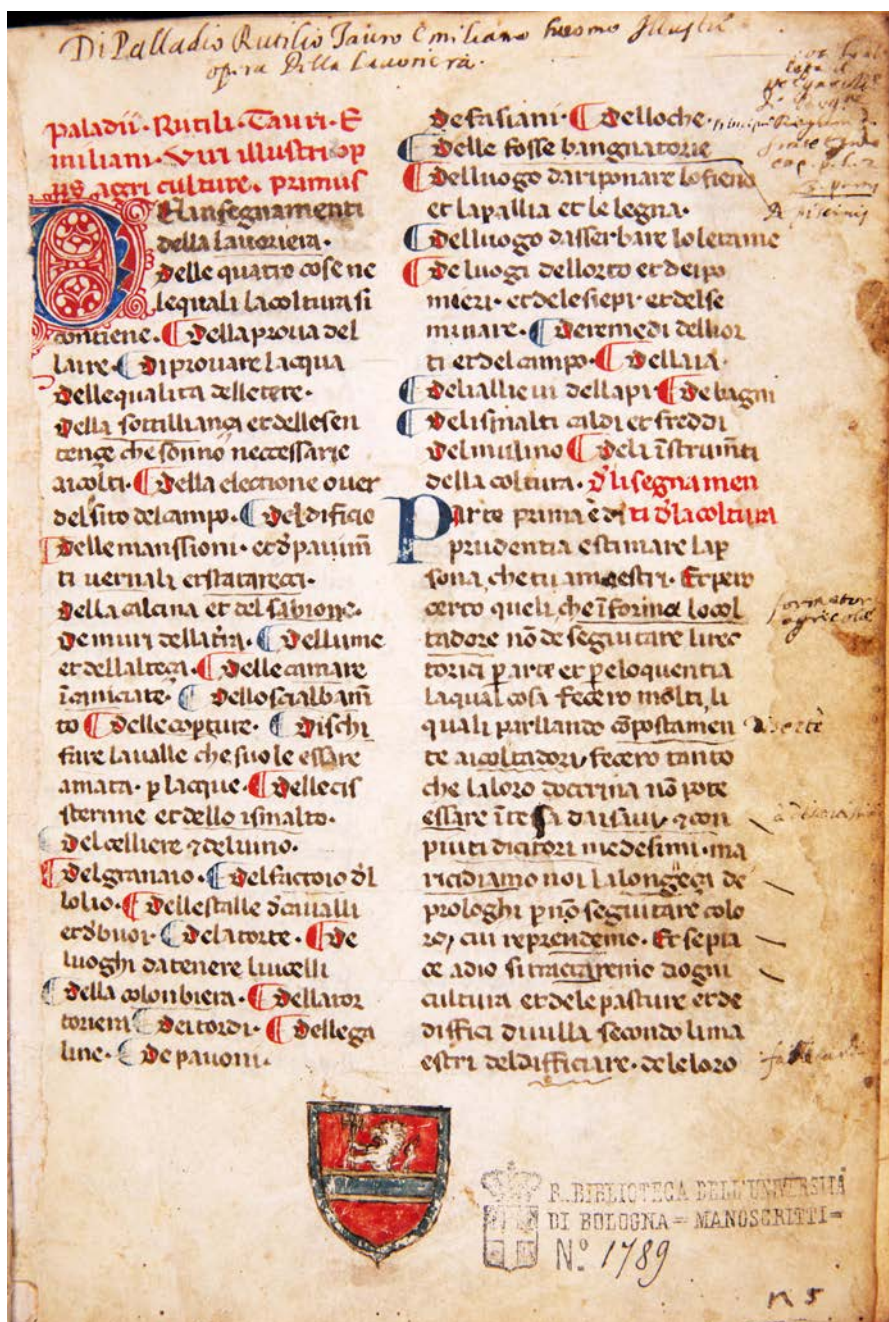 Di Palladio Rutilio Tauro Emiliano huomo Illustre
opera Della Lavoriera.
paladii · Rutili · Tauri · E
miliani · Viri illustri op
us agri culture · primus
DElansegnamenti
della lauoriera ·
delle quatro cose ne
lequali lacoltura si
contiene · dellaproua del
laire · diprouare lacqua
dellequalita delletere ·
della sottilliança etdellesen
tençe che sonno neccessarie
aicolti · della electione ouer
del sito del campo · deldificio
dellemanssioni · etd pauim̄
ti uernali etstatarecci ·
della calcina et del sabione ·
de muri della · dellume
et dellalteça · delle camare
īcaniciate · delloscialbam̄
to dellecopture · dischi
fare laualle che suole essare
amara · p lacque · dellecis
sternne et dello ismalto ·
del celliere ⁊ deluino ·
delgranaio · delfactoio dl
lolio · dellestalle dcaualli
etdbuoi · delacorte · de
luoghi datenere liucelli
della colonbiera · dellator
toriera deitordi · dellega
line · de pauoni ·
defasiani · delloche ·
delle fosse bangnatorie
delluogo dariponare lofieno
et lapallia et le legna ·
delluogo dasserbare loletame
de luogi dellorto etdeipo
mieri · etdelesiepi · etdelse
minare · deremedi dellior
ti etdelcampo · dellaia ·
deliallieui dellapi debagni
delismalti caldi et freddi
delmulino dela īstrum̄ti
della coltura · d'lisegnamen
ti d'lacoltura
Parte prima è di
prudentia estimare lap
sona, che tu amaestri · Et per
certo queli, che īforma locol
tadore nō de seguitare lirec
torici p arte et p eloquentia
laqual cosa fecero molti, li
quali parllando cōpostamen
te aicoltadori, fecero tanto
che laloro doctrina nō pote
essare ītesa daisaui, ⁊ con
piuti dicitori medesimi · ma
ricidiamo noi lalongeçi de
prologhi p nō seguitare colo
ro, cui reprendemo · Et sepia
ce adio sitractaremo dogni
cultura etdele pasture etde
diffici diuilla secondo lima
estri deldifficiare · deleloro
formator
agricolae
de piscinis
R. BIBLIOTECA DELL'UNIVERSITÀ
DI BOLOGNA = MANOSCRITTI =
N.º 1789
n 5